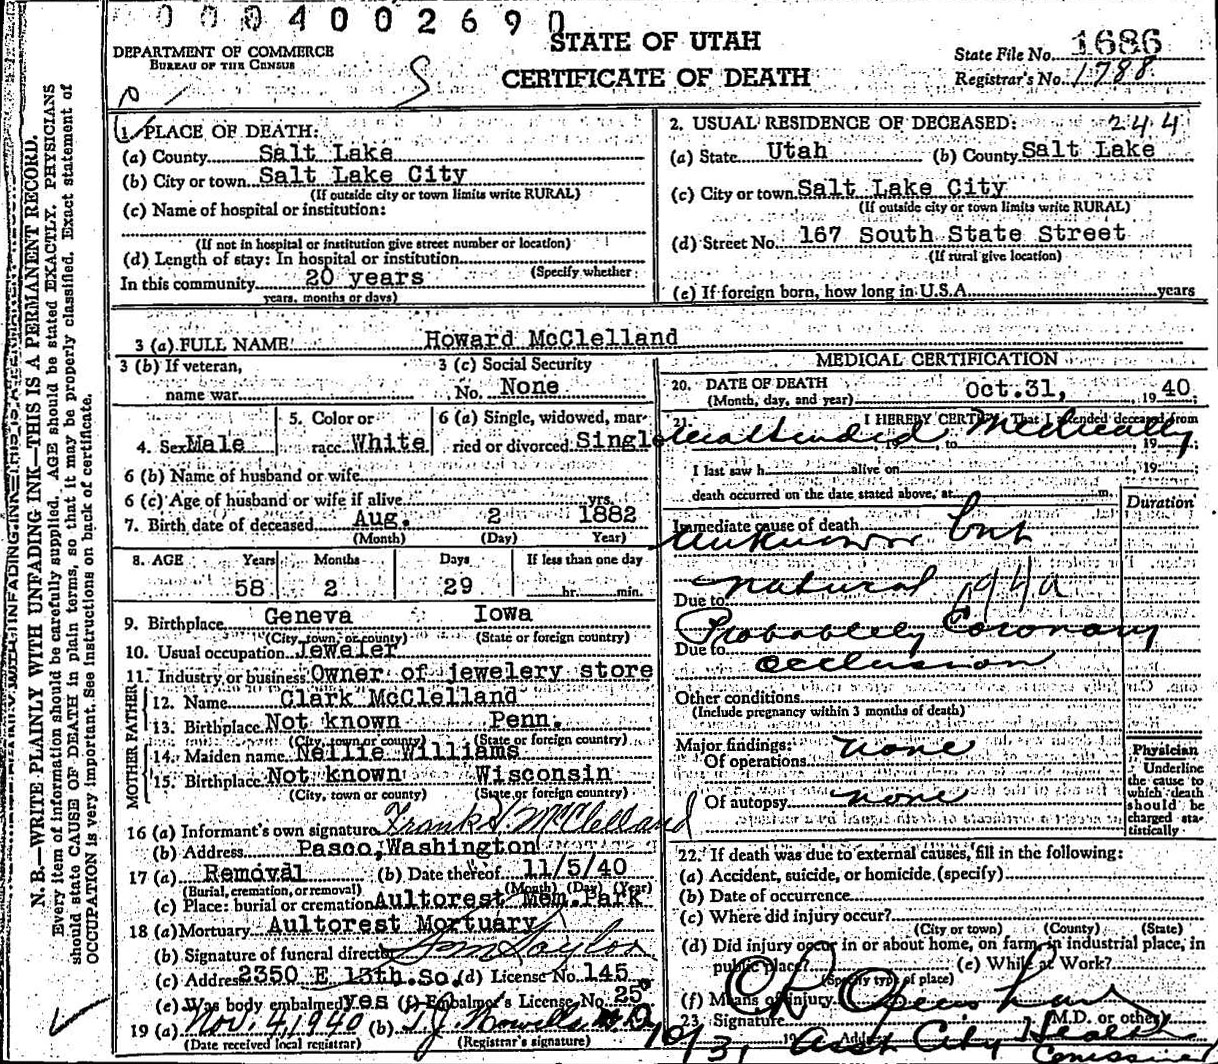 0004002690
DEPARTMENT OF COMMERCE
BUREAU OF THE CENSUS
STATE OF UTAH
CERTIFICATE OF DEATH
State File No. 1686
Registrar's No. 1788
N. B.—WRITE PLAINLY WITH UNFADING INK—THIS IS A PERMANENT RECORD.
Every item of information should be carefully supplied. AGE should be stated EXACTLY. PHYSICIANS
should state CAUSE OF DEATH in plain terms, so that it may be properly classified. Exact statement of
OCCUPATION is very important. See instructions on back of certificate.
1. PLACE OF DEATH:
(a) County Salt Lake
(b) City or town Salt Lake City
(If outside city or town limits write RURAL)
(c) Name of hospital or institution:
(If not in hospital or institution give street number or location)
(d) Length of stay: In hospital or institution
(Specify whether
In this community 20 years
years, months or days)
2. USUAL RESIDENCE OF DECEASED: 244
(a) State Utah (b) County Salt Lake
(c) City or town Salt Lake City
(If outside city or town limits write RURAL)
(d) Street No. 167 South State Street
(If rural give location)
(e) If foreign born, how long in U.S.A. years
3 (a) FULL NAME Howard McClelland
3 (b) If veteran,
name war
3 (c) Social Security
No. None
4. Sex Male
5. Color or
race White
6 (a) Single, widowed, mar-
ried or divorced Single
6 (b) Name of husband or wife
6 (c) Age of husband or wife if alive yrs.
7. Birth date of deceased Aug. 2 1882
(Month) (Day) Year)
8. AGE Years Months Days If less than one day
58 2 29 hr. min.
9. Birthplace Geneva Iowa
(City, town, or county) (State or foreign country)
10. Usual occupation Jeweler
11. Industry or business Owner of jewelery store
FATHER
12. Name Clark McClelland
13. Birthplace Not known Penn.
(City, town or county) (State or foreign country)
MOTHER
14. Maiden name Nellie Williams
15. Birthplace Not known Wisconsin
(City, town or county) (State or foreign country)
16 (a) Informant's own signature Frank S. McClelland
(b) Address Pasco, Washington
17 (a) Removal (b) Date thereof 11/5/40
(Burial, cremation, or removal) (Month) (Day) (Year)
(c) Place: burial or cremation Aultorest Mem. Park
18 (a) Mortuary Aultorest Mortuary
(b) Signature of funeral director
(c) Address 2350 E 13th. So. (d) License No. 145
(e) Was body embalmed yes (f) Embalmer's License No. 25
19 (a) Nov. 4, 1940 (b) T.J. Howells M.D.
(Date received local registrar) (Registrar's signature)
MEDICAL CERTIFICATION
20. DATE OF DEATH
(Month, day, and year) Oct. 31, 1940
21. I HEREBY CERTIFY, That I attended deceased from
Unattended Medically
, 19 , to , 19 ;
I last saw h alive on , 19 ;
death occurred on the date stated above, at m.
Duration
Immediate cause of death
Unknown but
Due to natural 94a
Due to Probablely Coronary
occlusion
Other conditions
(Include pregnancy within 3 months of death)
Major findings:
Of operations none
Of autopsy none
Physician
Underline
the cause to
which death
should be
charged sta-
tistically
22. If death was due to external causes, fill in the following:
(a) Accident, suicide, or homicide (specify)
(b) Date of occurrence
(c) Where did injury occur?
(City or town) (County) (State)
(d) Did injury occur in or about home, on farm, in industrial place, in
public place? (e) While at Work?
(Specify type of place)
(f) Means of injury
23. Signature (M.D. or other)
Address City Health